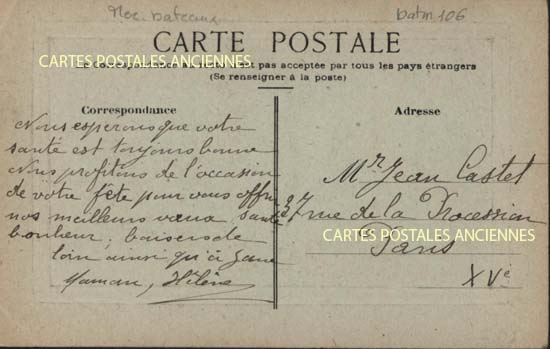 Noc. bateaux
batm 106
CARTE POSTALE
CARTES POSTALES ANCIENNES
La correspondance au recto n'est pas acceptée par tous les pays étrangers
(Se renseigner à la poste)
Correspondance
Nous esperons que votre
santé est toujours bonne
Nous profitons de l'occasion
de votre fête pour vous offrir
nos meilleurs vœux santé
bonheur, baisers de
loin ainsi qu'à
Maman, Hélène
Adresse
Mr Jean Castet
37 rue de la Procession
CARTES POSTALES ANCIENNES
Paris
XVe